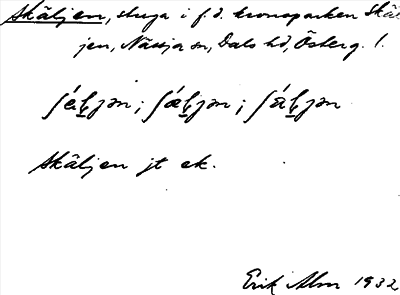 Skäljen, stuga i f.d. kronoparken Skäl-
jen, Nässja sn, Dals hd, Österg. l.
Skäljen jt ek.
Erik Alm 1932